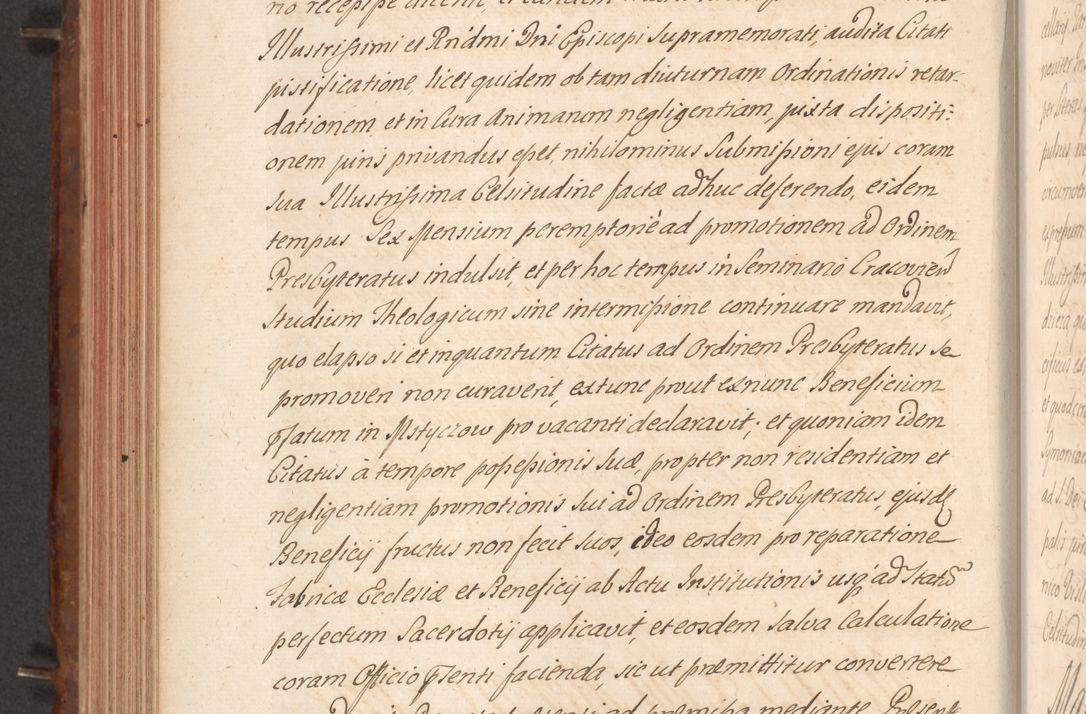 no recepisse dicerit, et eundem
Illustrissimi et Rn̄dmi Dni Episcopi Supramemorati, audita Citati
justificatione, licet quidem ob tam diuturnam Ordinationis retar-
dationem et in Cura Animarum negligentiam, juxta dispositi=
onem juris privandus esset, nihilominus Submissioni ejus coram
sua Illustrissima Celsitudine factæ adhuc deferendo, eidem
tempus Sex Mensium peremptorie ad promotionem ad Ordinem
Presbyteratus indulsit, et per hoc tempus in Seminario Cracovien
studium Theologicum sine intermissione continuare mandavit,
quo elapso si et inquantum Citatus ad Ordinem Presbyteratus se
promoveri non curaverit, extunc prout exnunc Beneficium
pſatum in Mstyczow pro vacanti declaravit; et quoniam idem
Citatus à tempore possessionis suæ, propter non residentiam et
negligentiam promotionis sui ad Ordinem Presbyteratus, ejusdē
Beneficij fructus non fecit suos, ideo eosdem pro reparatione
Fabricæ Ecclesiæ et Beneficij ab Actu Institutionis usq́ ad Statū
perfectum Sacerdotij applicavit, et eosdem salva Calculatione
coram Officio pſenti facienda, sic ut præmittitur convertere
ad præmissa mediante Present